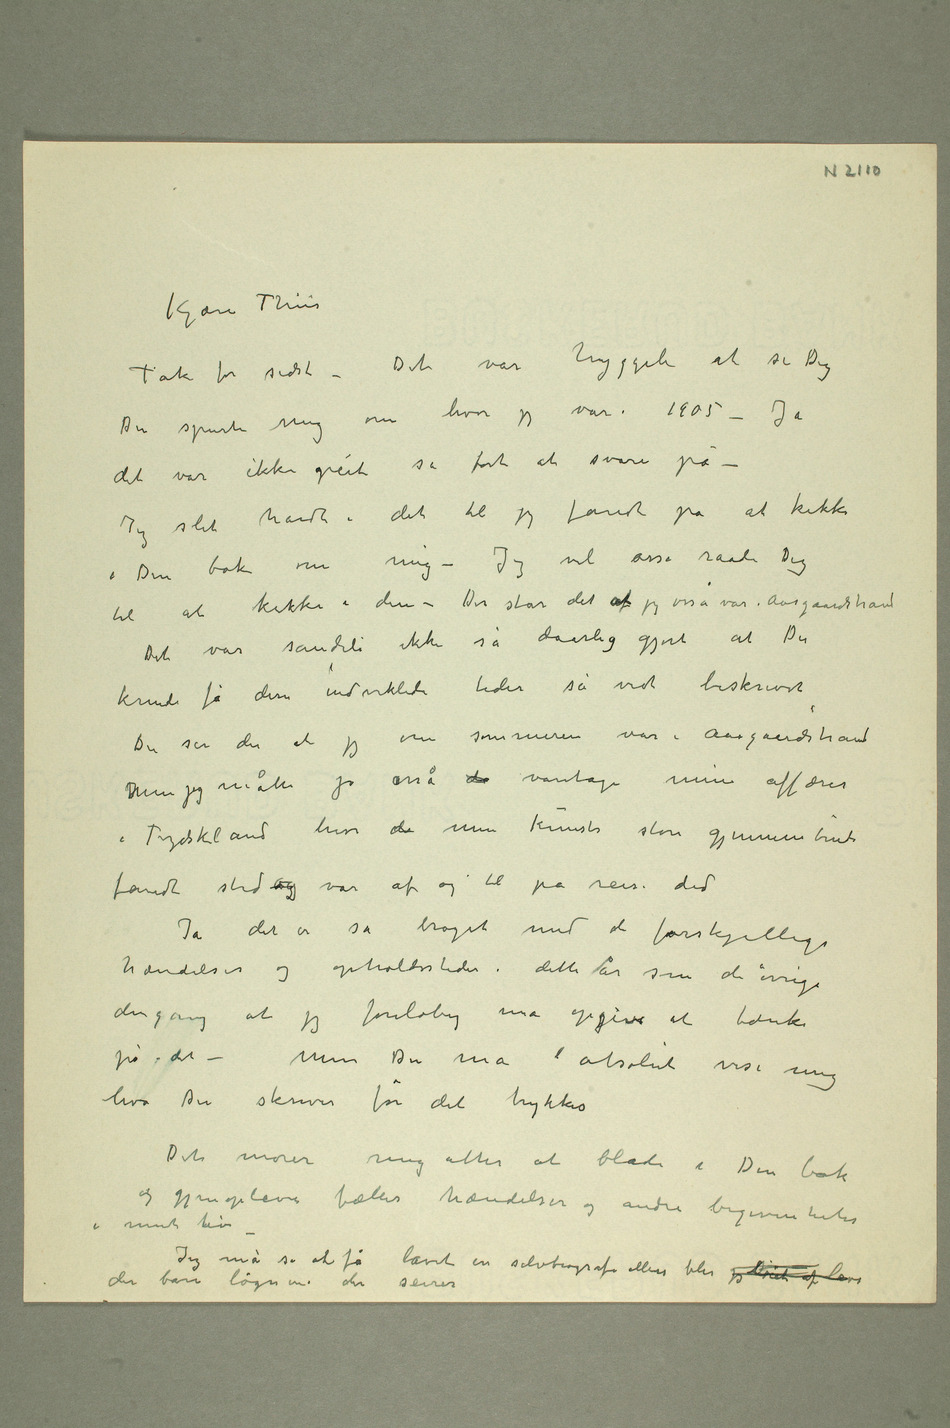 N 2110
Kjære Thiis
Tak for sidst – Det var hyggeli at se Dig
Du spurte mig om hvor jeg var i 1905 – Ja
det var ikke greit så fort at svare på –
Jeg slet hardt i det til jeg fandt på at kikke
i Din bok om mig – Jeg vil osså raade Dig
til at kikke i den – Der står det at jeg osså var i Aasgaardstrand
Det var sandeli ikke så daarlig gjort at Du
kunde få disse indviklede tider så vidt beskrevet
Du ser der at jeg om sommeren var i Aasgaardstrand
Men jeg måtte jo osså varetage mine affærer
i Tydskland hvor min kunsts store gjennembrud
fandt sted og var af og til på reise did
Ja det er så broget med de forskjellige
hændelser og opholdssteder i dette år som de øvrige
dengang at jeg foreløbig må opgive at tænke
på det – Men Du må absolut vise mig
hva Du skriver før det trykkes
Det morer mig atter at blade i Din bok
og gjenopleve fælles hændelser og andre begivenheter
i mit liv –
Jeg må se at få lavet en selvbiografi ellers blir
der bare løgnene der seirer